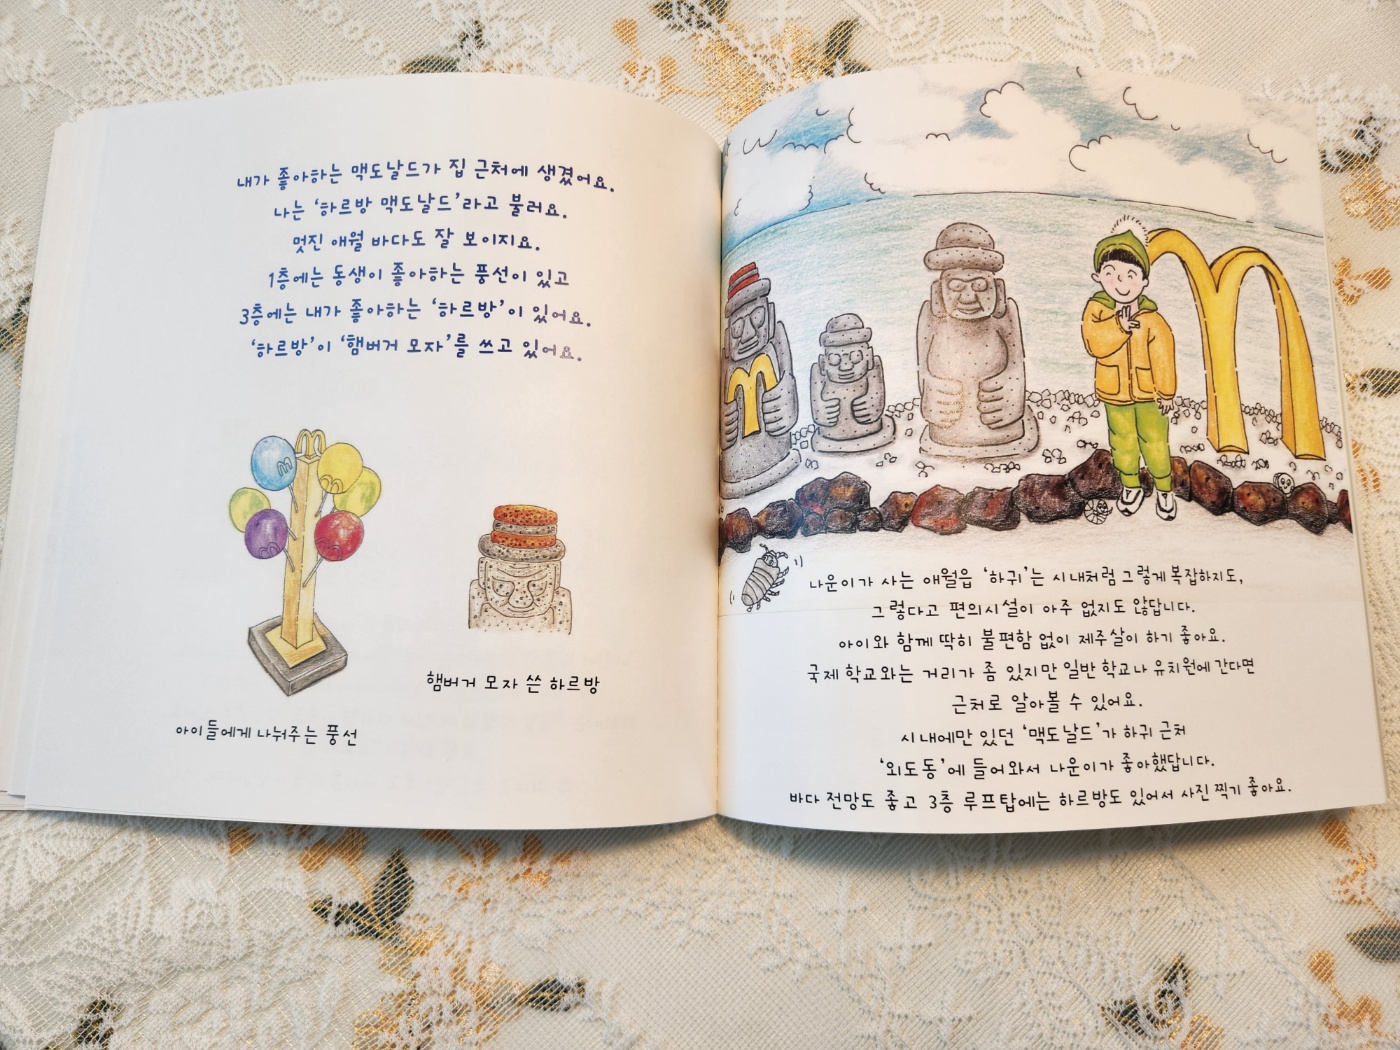 내가 좋아하는 맥도날드가 집 근처에 생겼어요.
나는 '하르방 맥도날드'라고 불러요.
멋진 애월 바다도 잘 보이지요.
1층에는 동생이 좋아하는 풍선이 있고
3층에는 내가 좋아하는 '하르방'이 있어요.
'하르방'이 '햄버거 모자'를 쓰고 있어요.
햄버거 모자 쓴 하르방
아이들에게 나눠주는 풍선
나운이가 사는 애월읍 '하귀'는 시내처럼 그렇게 복잡하지도,
그렇다고 편의시설이 아주 없지도 않답니다.
아이와 함께 딱히 불편함 없이 제주살이 하기 좋아요.
국제 학교와는 거리가 좀 있지만 일반 학교나 유치원에 간다면
근처로 알아볼 수 있어요.
시내에만 있던 '맥도날드'가 하귀 근처
'외도동'에 들어와서 나운이가 좋아했답니다.
바다 전망도 좋고 3층 루프탑에는 하르방도 있어서 사진 찍기 좋아요.